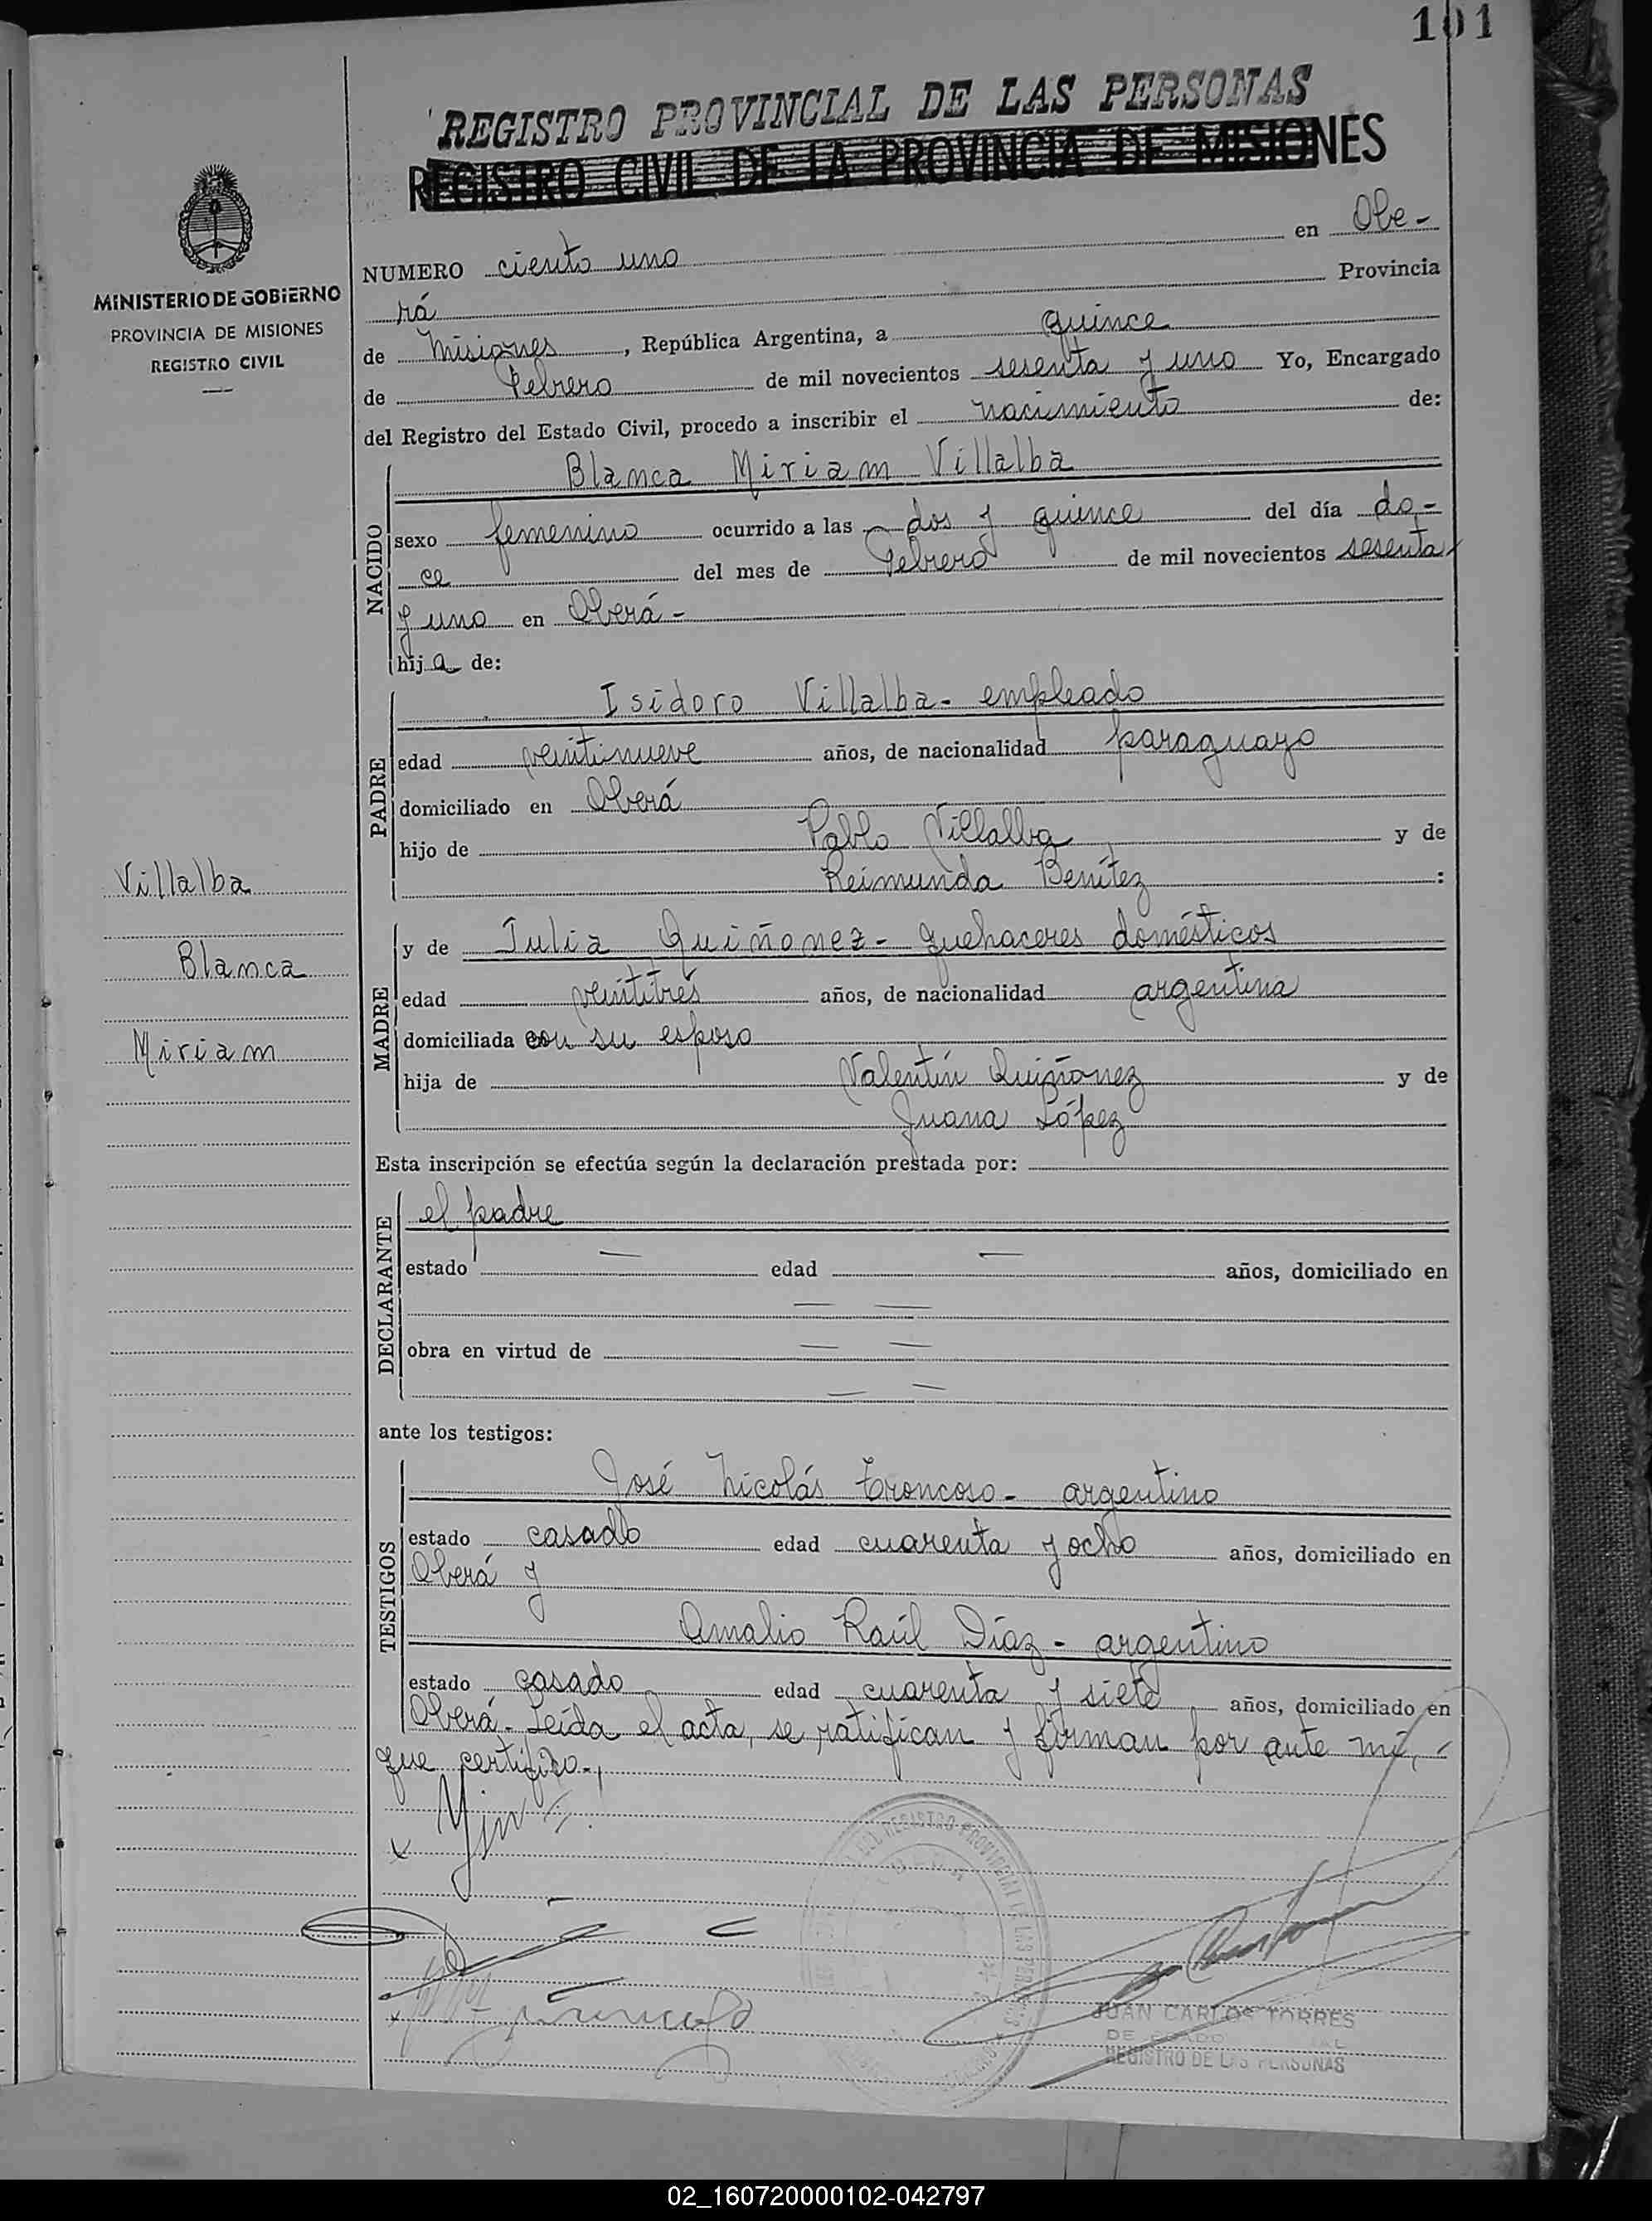 101
REGISTRO PROVINCIAL DE LAS PERSONAS
REGISTRO CIVIL DE LA PROVINCIA DE MISIONES
MINISTERIO DE GOBIERNO
PROVINCIA DE MISIONES
REGISTRO CIVIL
NUMERO ciento uno en Obe-
rá Provincia
de Misiones, República Argentina, a quince
de Febrero de mil novecientos sesenta y uno Yo, Encargado
del Registro del Estado Civil, procedo a inscribir el nacimiento de:
NACIDO
Blanca Miriam Villalba
sexo femenino ocurrido a las dos y quince del día do-
ce del mes de Febrero de mil novecientos sesenta
y uno en Oberá-
hija de:
PADRE
Isidoro Villalba- empleado
edad veintinueve años, de nacionalidad paraguayo
domiciliado en Oberá
hijo de Pablo Villalba y de
Reimunda Benítez :
Villalba
Blanca
Miriam
MADRE
y de Julia Quiñonez- quehaceres domésticos
edad veintitrés años, de nacionalidad argentina
domiciliada con su esposo
hija de Valentín Quiñonez y de
Juana López
Esta inscripción se efectúa según la declaración prestada por:
DECLARANTE
el padre
estado — edad — años, domiciliado en
— —
obra en virtud de — —
— —
ante los testigos:
TESTIGOS
José Nicolás Troncoso- argentino
estado casado edad cuarenta y ocho años, domiciliado en
Oberá y
Amalio Raúl Díaz- argentino
estado casado edad cuarenta y siete años, domiciliado en
Oberá- Leída el acta, se ratifican y firman por ante mí,-
que certifico.-
DEL REGISTRO PROVINCIAL DE LAS PERSONAS
JUAN CARLOS TORRES
REGISTRO DE LAS PERSONAS
02_160720000102-042797